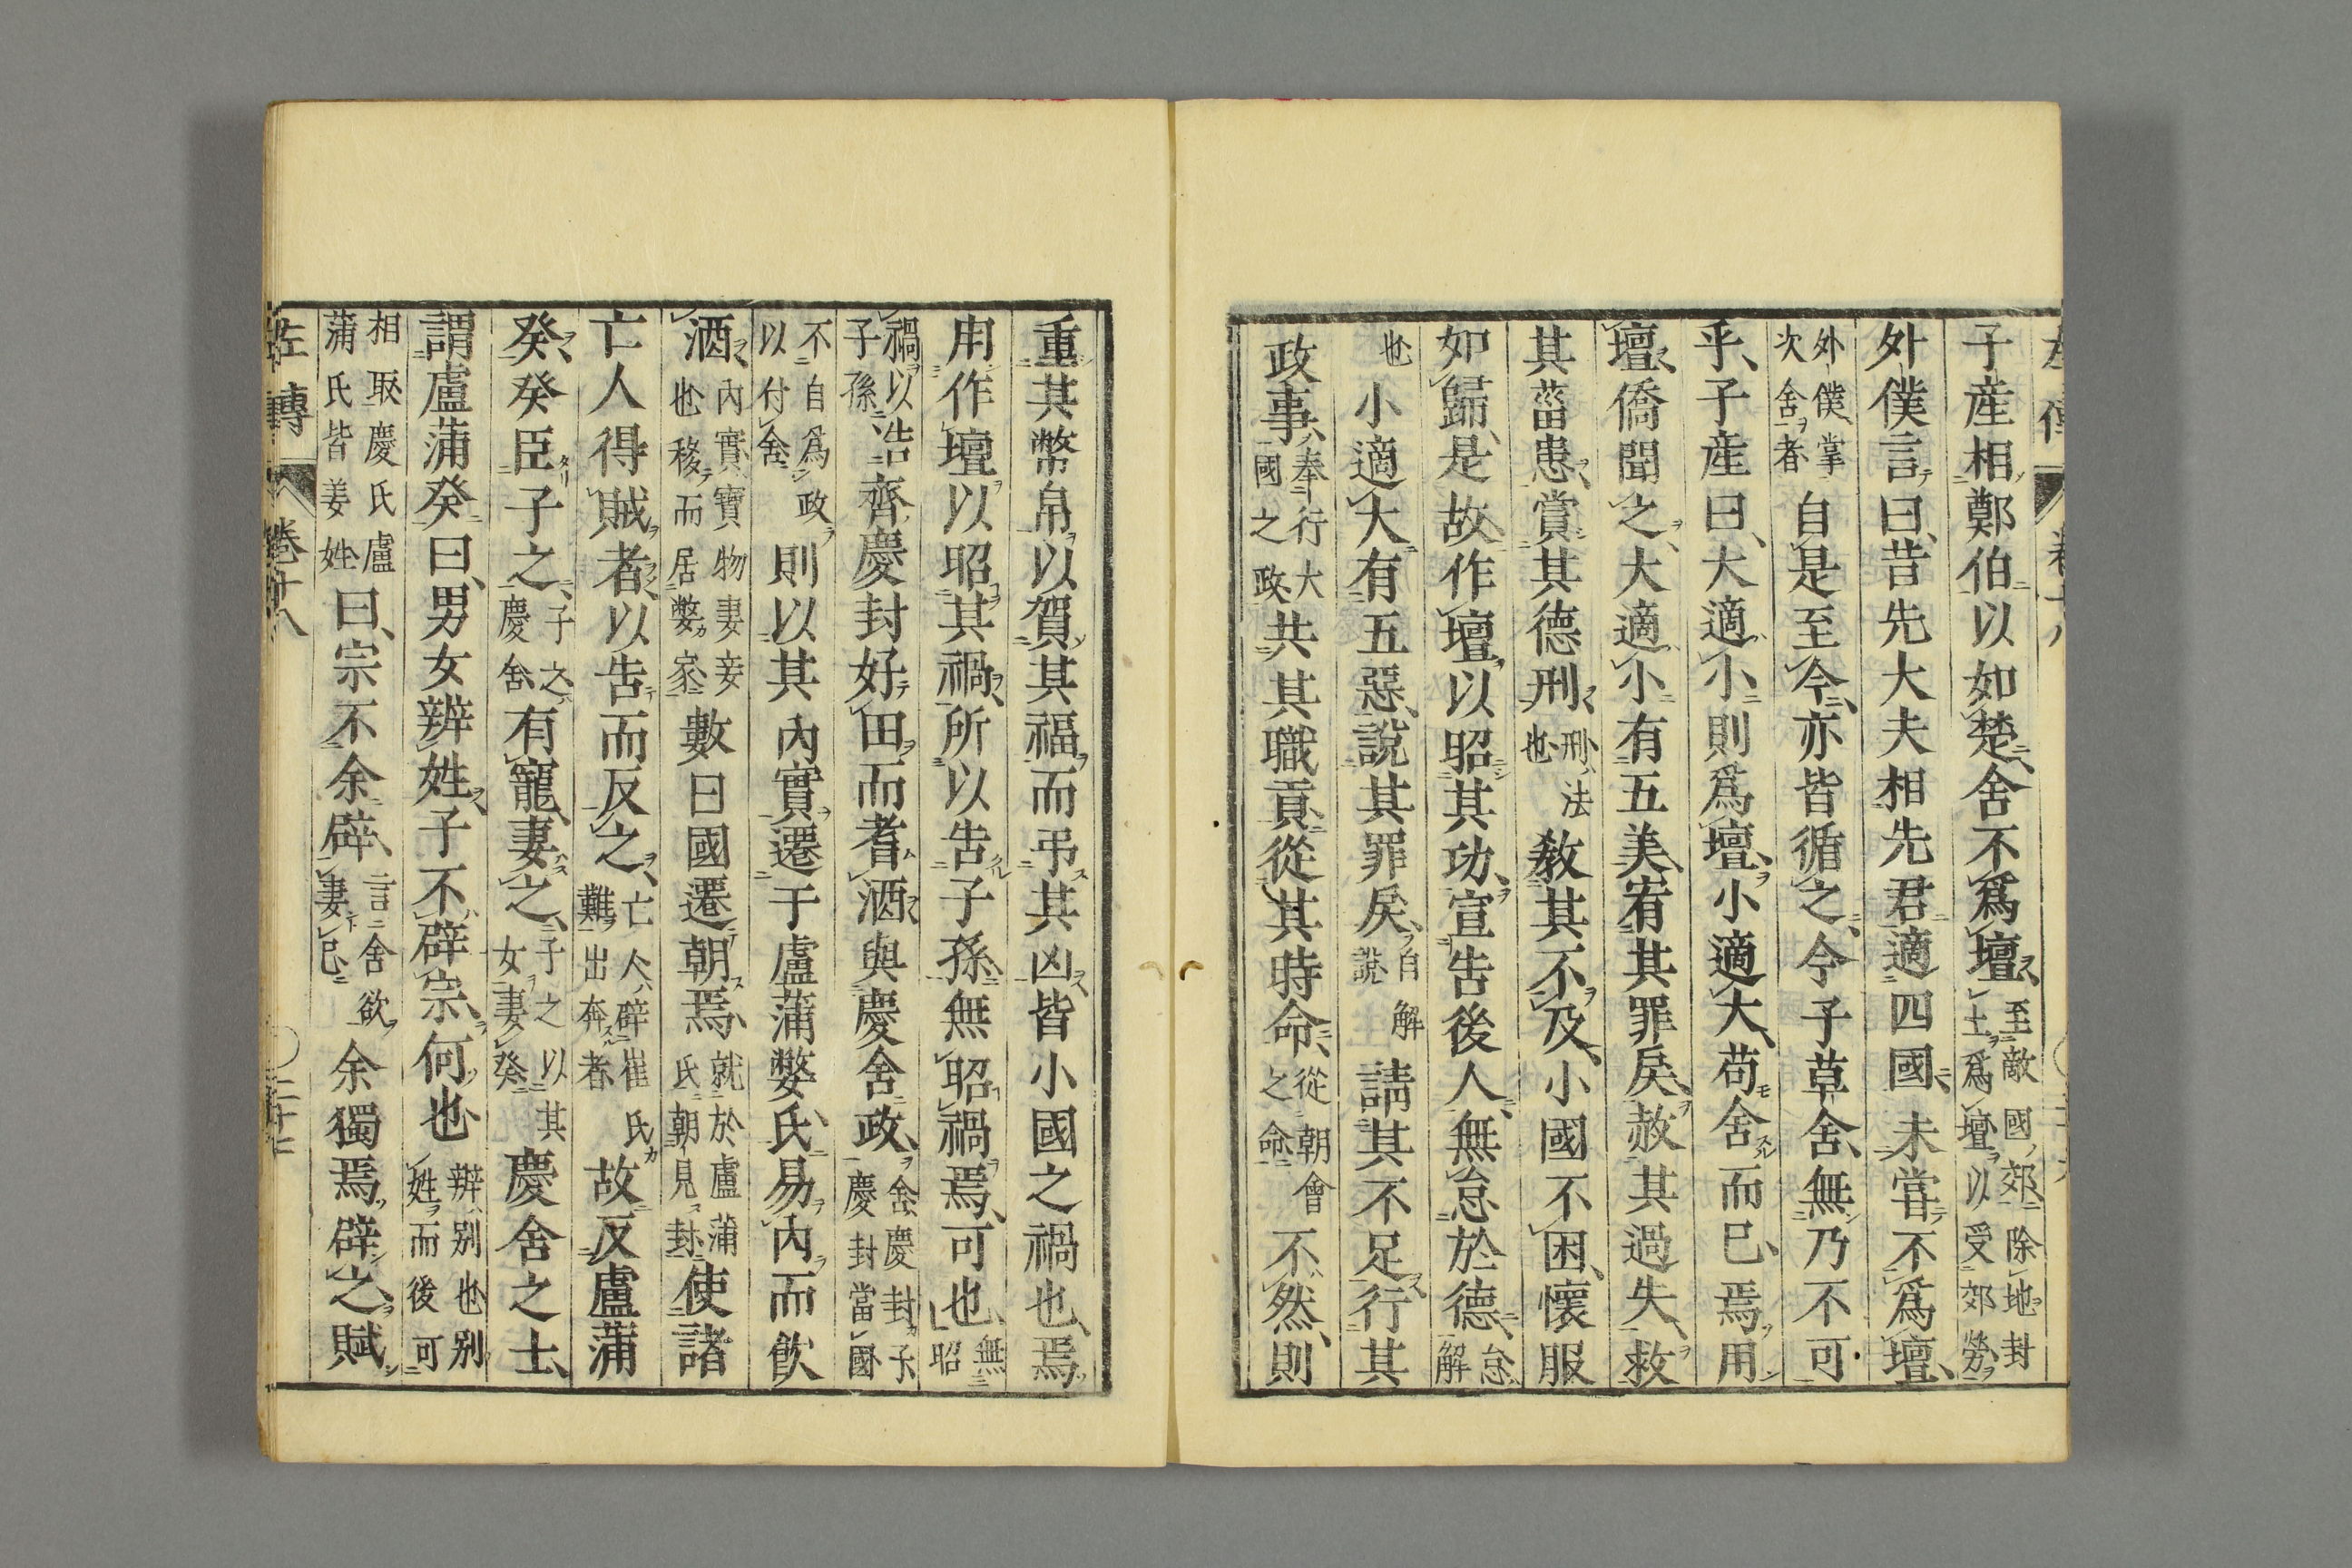 子產相鄭伯以如楚舍不爲壇至敵國郊除地封土爲壇以受郊勞
外僕言曰昔先大夫相先君適四國未嘗不爲壇
外僕掌次舍者自是至今亦皆循之今子草舍無乃不可
乎子產曰大適小則爲壇小適大苟舍而已焉用
壇僑聞之大適小有五美宥其罪戾赦其過失救
其菑患賞其德刑刑法也教其不及小國不困懷服
如歸是故作壇以昭其功宣告後人無怠於德怠解
也小適大有五惡說其罪戾自解說請其不足行其
政事奉行大國之政共其職貢從其時命從朝會之命不然則
重其幣帛以賀其福而弔其凶皆小國之禍也焉
用作壇以昭其禍所以告子孫無昭禍焉可也無昭
禍以告子孫齊慶封好田而耆酒與慶舍政舍慶封子慶封當國
不自爲政以付舍則以其內實遷于盧蒲嫳氏易內而飲
酒內實寶物妻妾也移而居嫳家數日國遷朝焉就於盧蒲氏朝見封使諸
亡人得賊者以告而反之亡人辟崔氏難出奔者故反盧蒲
癸癸臣子之子之慶舍有寵妻之子之以其女妻癸慶舍之士
謂盧蒲癸曰男女辨姓子不辟宗何也辨別也別姓而後可
相取慶氏盧蒲氏皆姜姓曰宗不余辟言舍欲妻己余獨焉辟之賦
左傳 卷十八 二十七